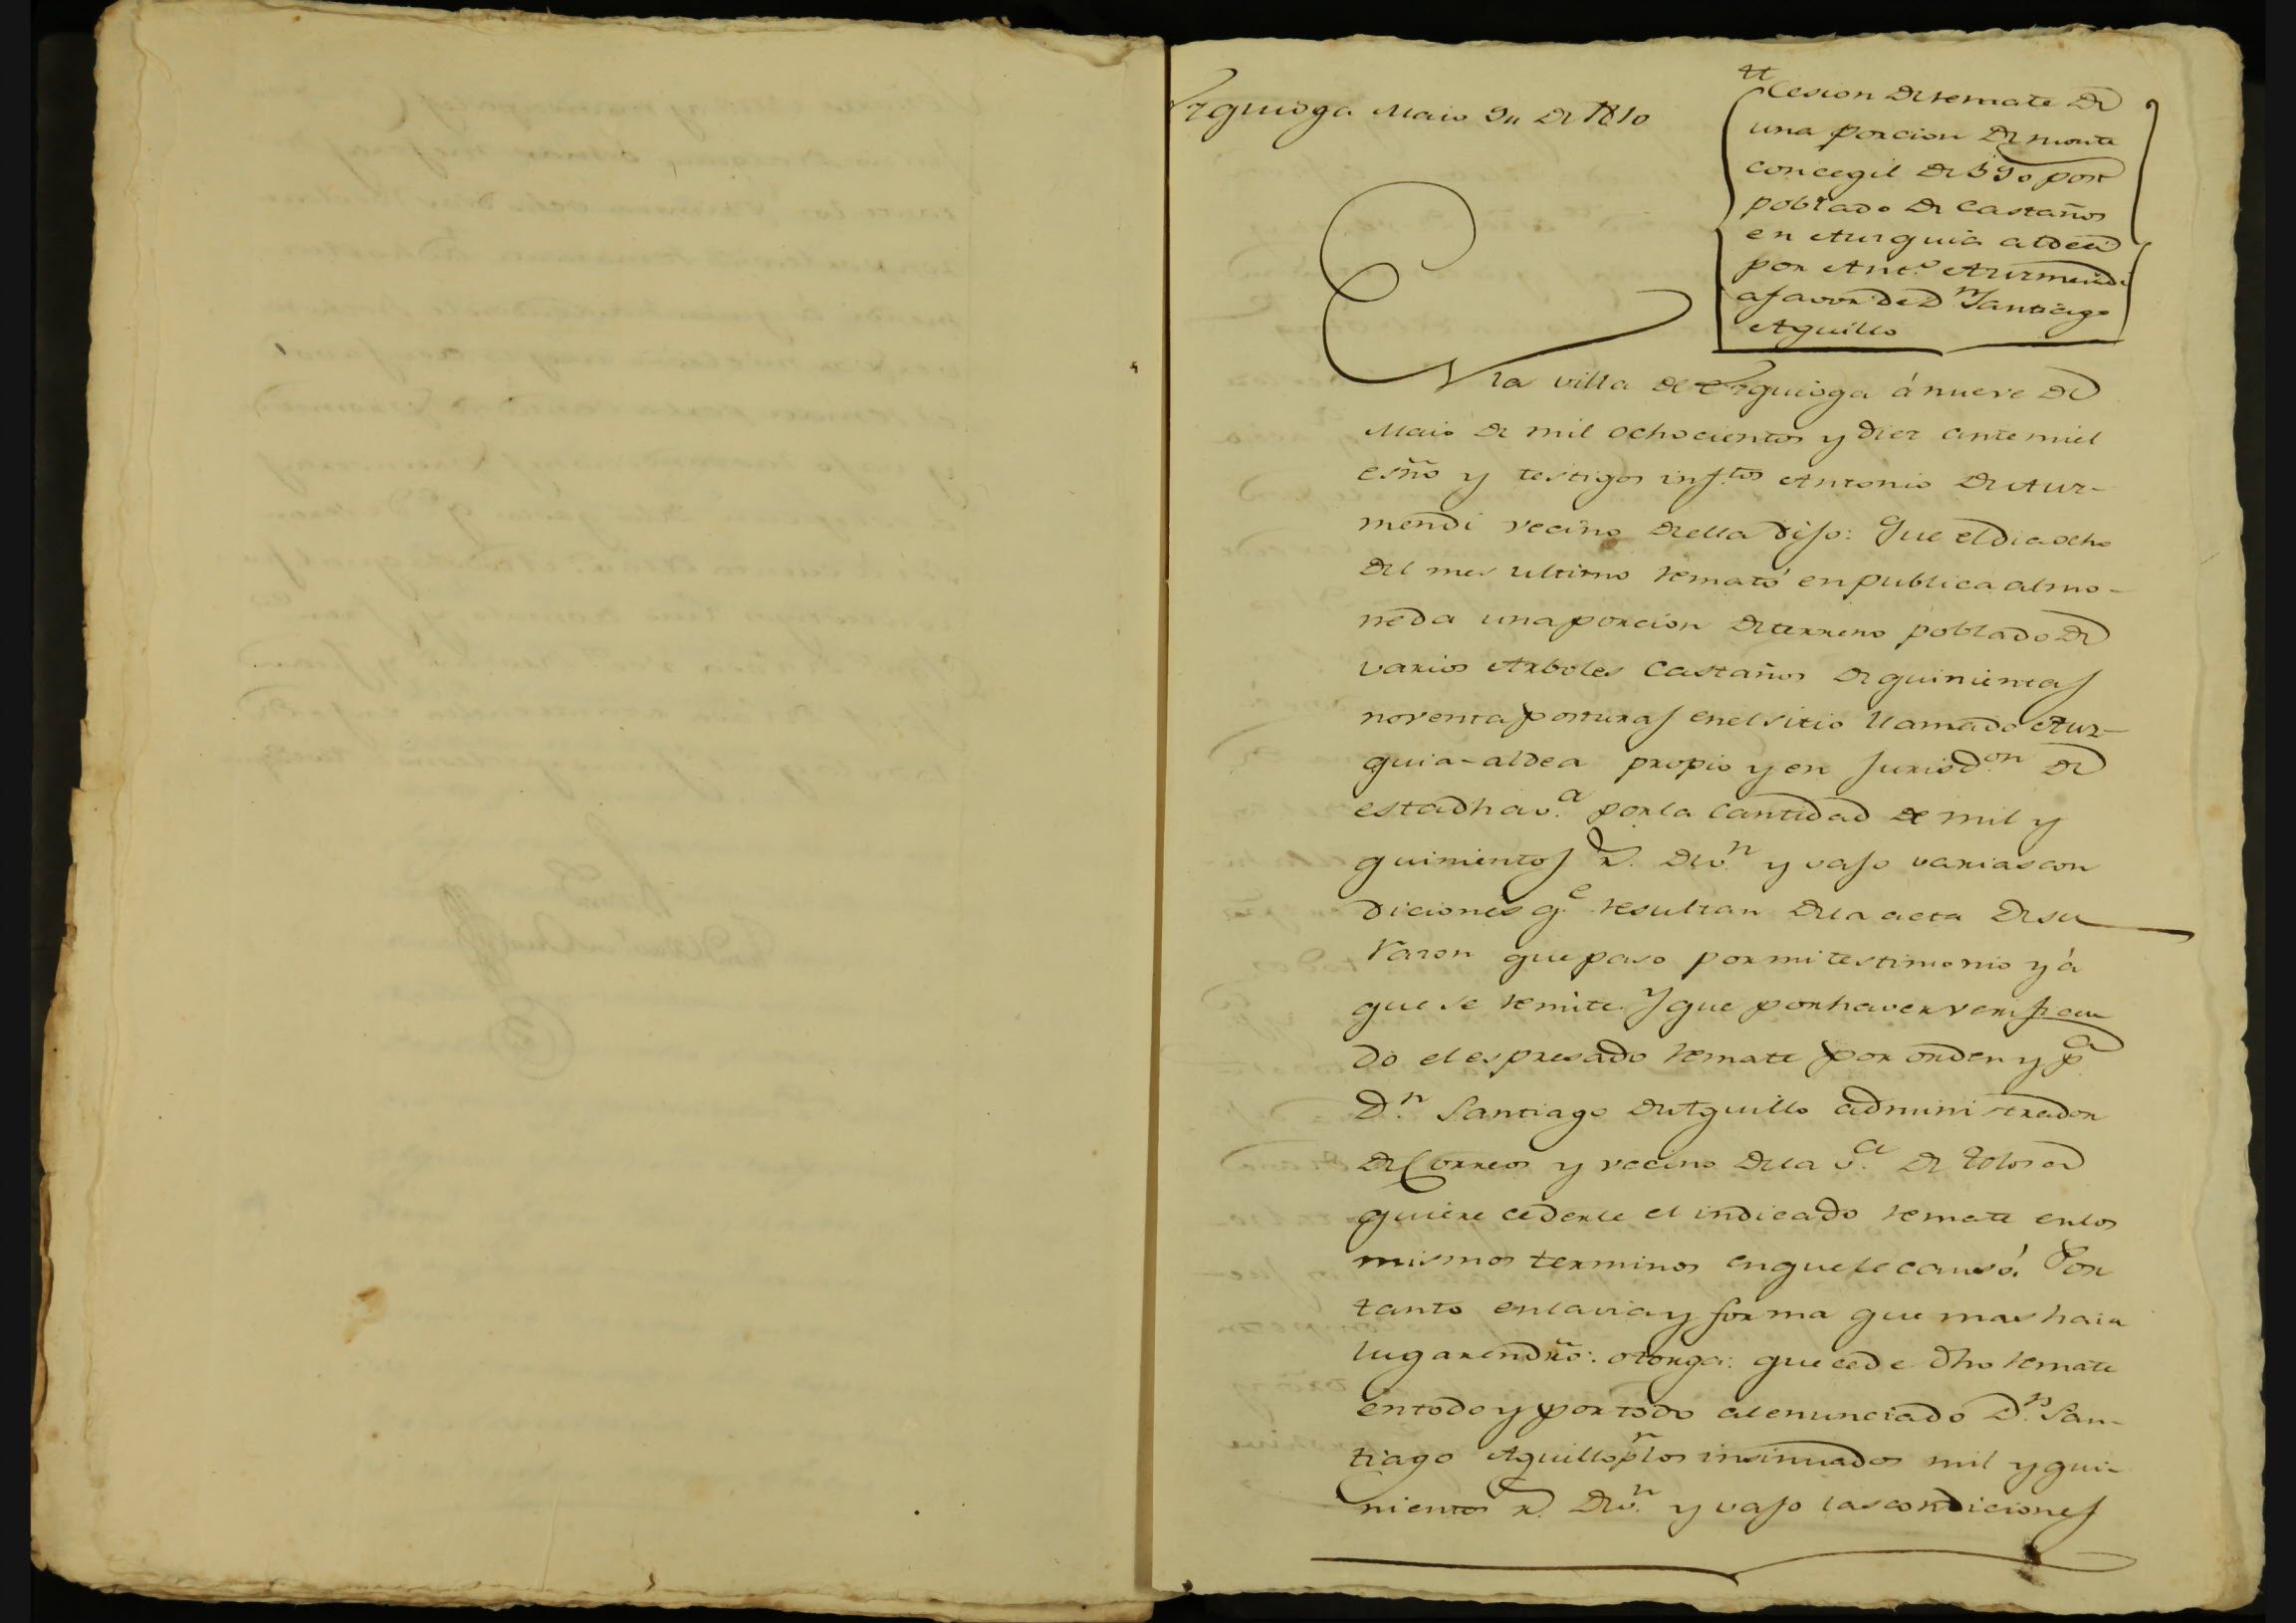 Ezquioga Maio 9,, de 1810
Cesion de remate de
una porcion de monte
concegil de 590 por
poblado de Castaños
en Aurguia aldea
por Ant.º Aurmendi
a favor de D.n Santiago
Aguillo
En la villa de Ezquioga á nueve de
Maio de mil ochocientos y diez ante mi el
esño y testigos inf.tos Antonio de Aur-
mendi vecino de ella dijo: Que el dia ocho
del mes ultimo remató en publica almo-
neda una porcion de terreno poblado de
varios Arboles Castaños de quinientas
noventa posturas en el sitio llamado Aur-
guia-aldea propio y en jurisd.on de
esta dha v.a por la cantidad de mil y
quinientos r.s de v.n y vajo varias con
diciones q.e resultan de la acta de su
razon que paso por mi testimonio y á
que se remite. Y que por haver verifica
do el espresado remate por orden y p.a
D.n Santiago de Aguillo administrador
de Correos y vecino de la v.a de Tolosa
quiere cederle el indicado remate en los
mismos terminos en que le causó. Por
tanto en la via y forma que mas haia
lugar en dro: otorga: que cede dho remate
en todo y por todo al enunciado D.n San-
tiago Aguillo p.r los insinuados mil y qui-
nientos r.s de v.n y vajo las condiciones